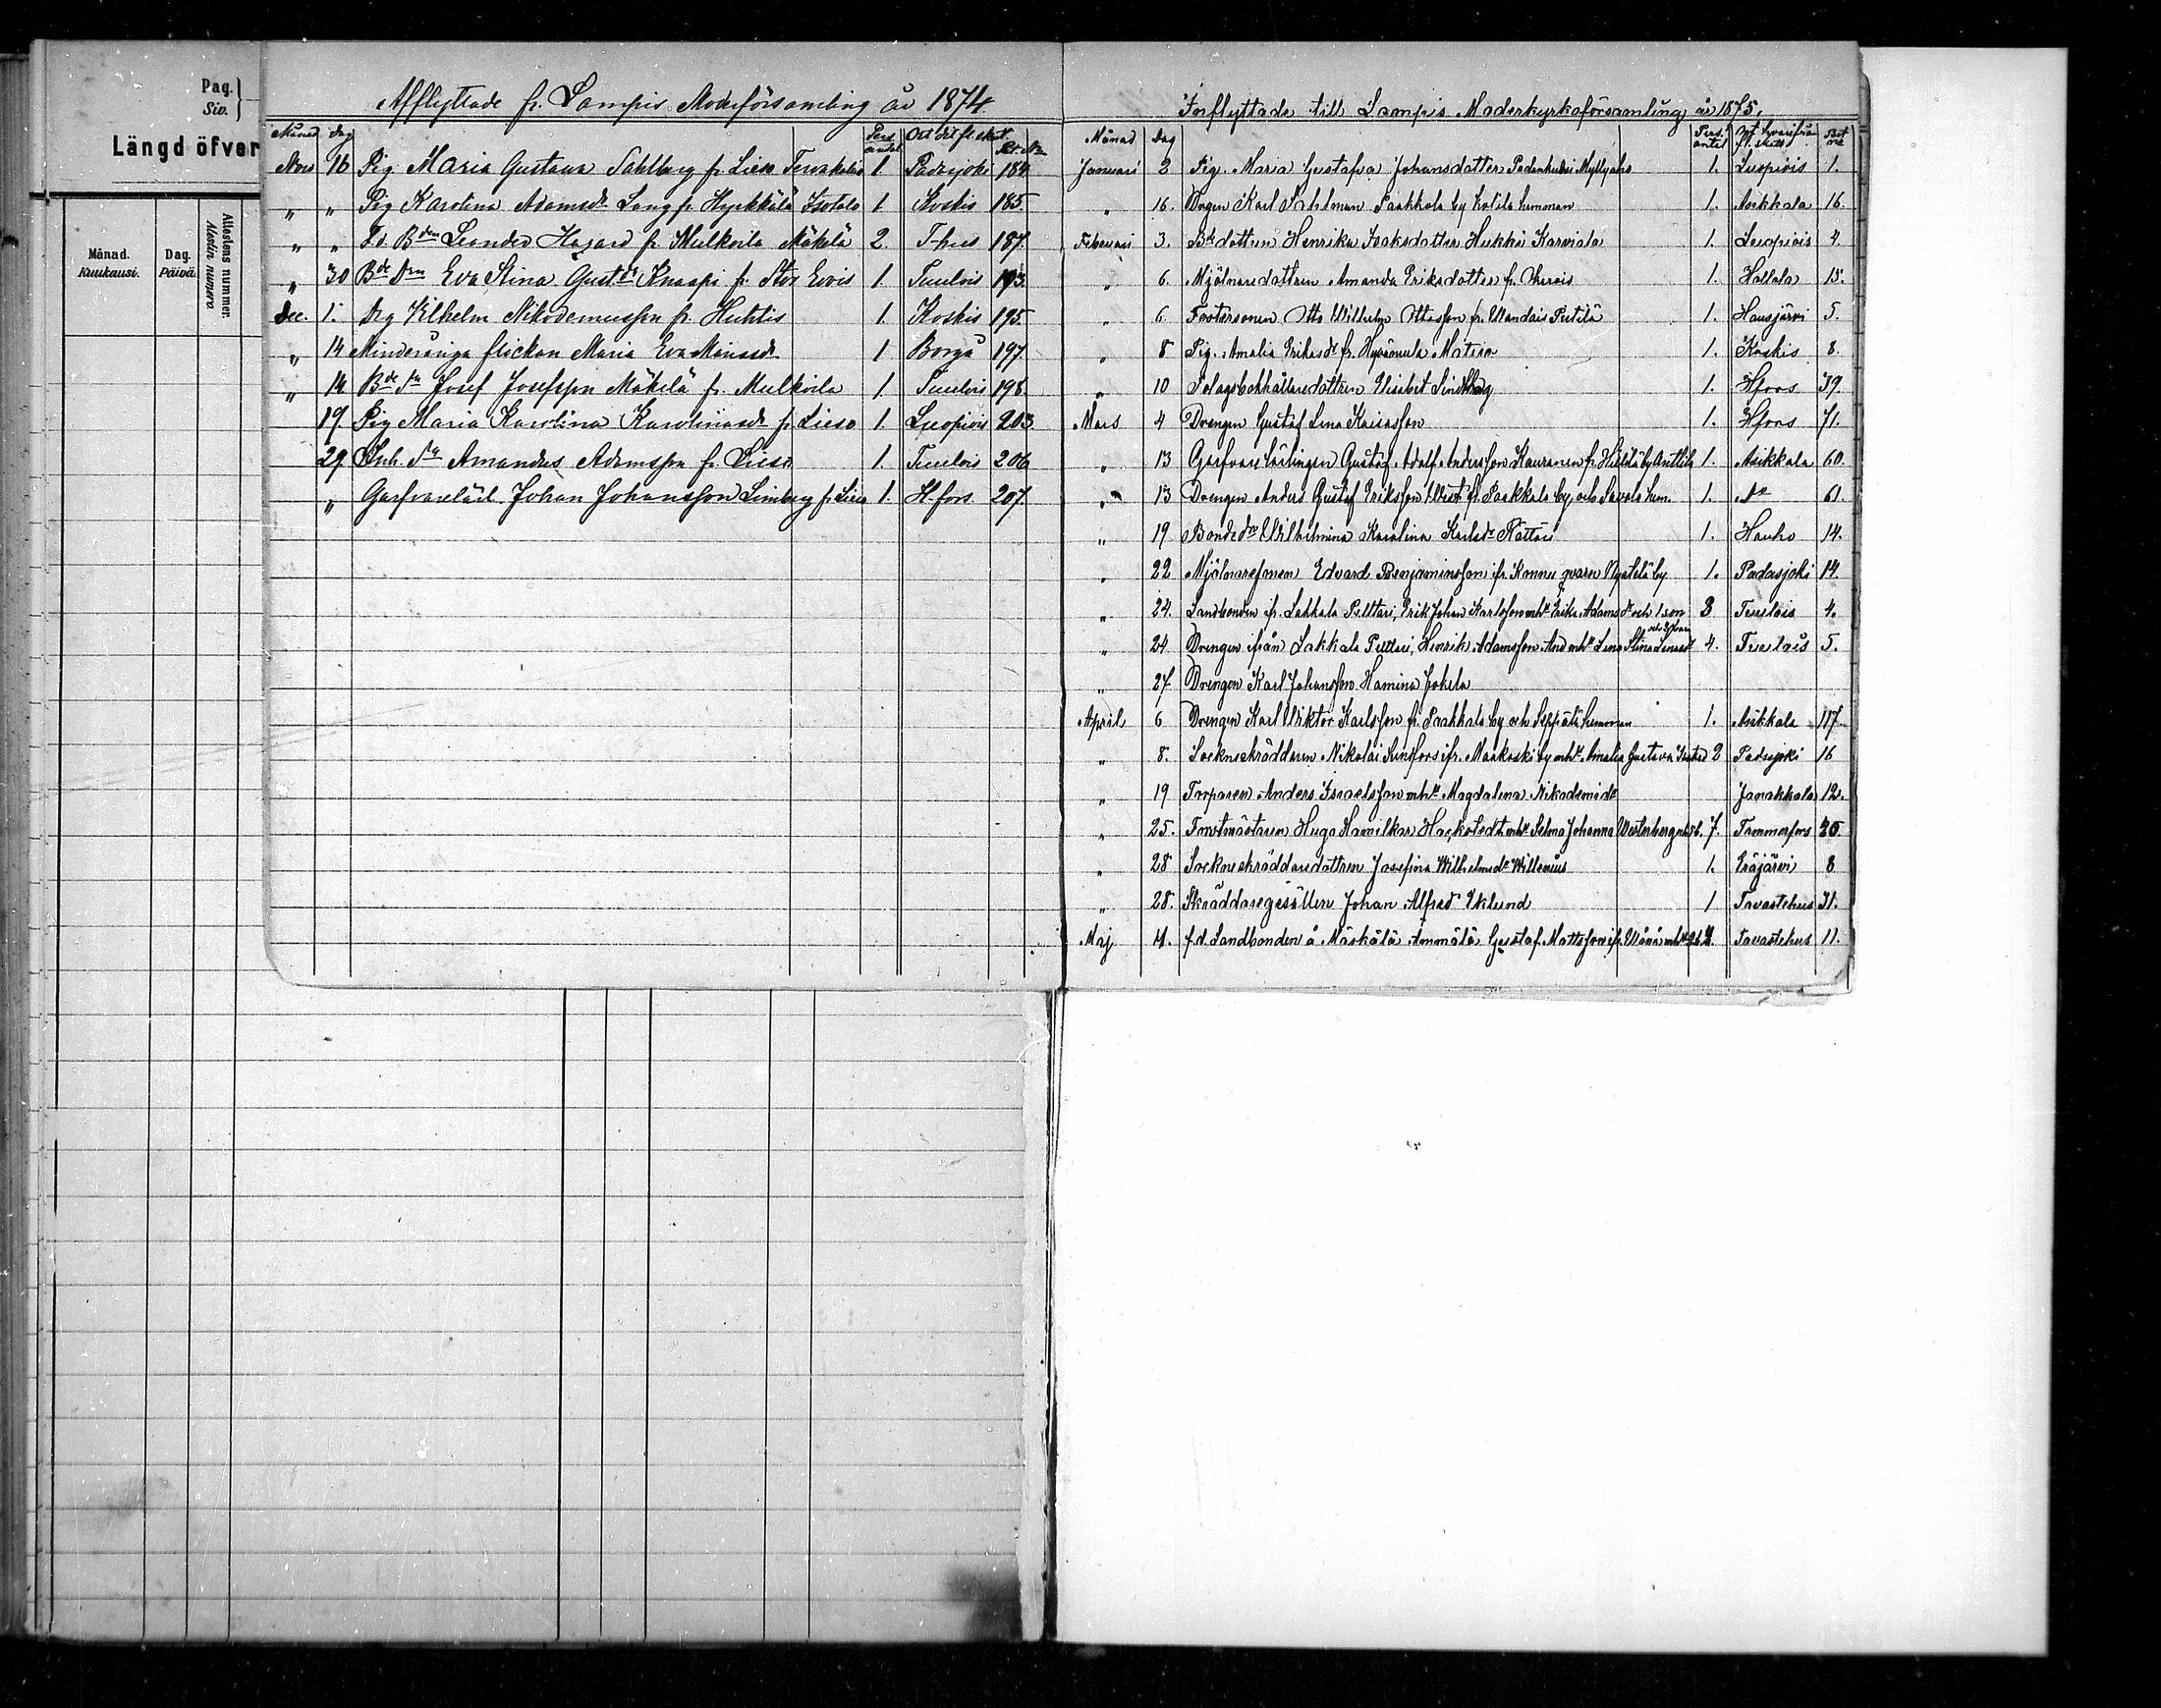 Pag.
Siv.
Längd öfver
Månad.
Kuukausi.
Dag.
Päivä.
Attestens nummer.
Afflyttade fr. Lampis Moderförsamling år 1874.
Månad Dag Pers. antal Ort dit fl. skett Bet. No
Nov 16 Pig. Maria Gustava Sahlberg fr. Lieso 1. Padasjoki 184.
„ „ Pig Karolina Adamsdr Lang fr. Hyrkkälä Isotalo 1 Koskis 185.
„ „ F.d. Bden Leander Hasard fr. Mulkoila Mäkelä 2. T-hus 187.
„ 30 Bde Drn Eva Stina Gustdr Knaapi fr. Stor Evois 1. Tuulois 193.
Dec. 1. Drg Vilhelm Nikodemusson fr. Huhtis 1. Koskis 195.
„ 14 Minderåriga flickan Maria Eva 1 Borgå 197.
„ 14 Bde Sn Josef Josefsson Mäkelä fr. Mulkoila 1. Tuulois 198.
19. Pig Maria Karolina Karolinasdr fr. Lieso 1. Luopiois 203.
29 Inh. Sn Amandus Adamsson fr. Lieso 1. Tuulois 206
„ Garfvarelärl. Johan Johansson Limberg fr. Lieso 1. H.fors. 207.
Inflyttade till Lampis Moderkyrkoförsamling år 1875.
Månad Dag Pers. antal Ort hvarifrån fl. skett Bet. No
Januari 2 Pig. Maria Gustafva Johansdotter Myllyaho 1. Luopiois 1.
„ 16. Drgen Karl Sahlman Paakkola by 1. Asikkala 16.
Februari 3. Bdedottren Henrika Isaksdotter Hukkii Karviala 1. Luopiois 4.
„ 6. Mjölnaredottren Amanda Eriksdotter fr. 1. Hollola 15.
„ 6. Otto Wilhelm Ottosson fr. Pertilä 1. Hausjärvi 5.
„ 8 Pig. Amalia Eriksdr fr. 1. Koskis 8.
„ 10 Elisabet Lindberg 1. Hfors 39.
Mars 4 Drengen Gustaf Lena Kaisasson 1. Hfors 71.
„ 13 Garfvare Lärlingen Gustaf Adolf Andersson Kauranen fr. 1. Asikkala 60.
„ 13 Drengen Anders Gustaf Eriksson fr. Paakkola by och Savola hem. 1. Do 61.
„ 19 Bondedr Wilhelmina Karolina Karlsdr Rättäri 1. Hauho 14.
„ 22 Mjölnaresonen Edvard Benjaminsson fr. qvarn by 1. Padasjoki 14.
„ 24. Landbonden fr. Lakkola Pelttari, Erik Johan Karlsson m.h. Erika Adamsdr och 1 son 3 Tuulois 4.
„ 24 Drengen ifrån Lakkola Pelttari, Henrik Adamsson m.h. Lena Stina 4. Tuulois 5.
„ 27. Drengen Karl Johansson Hamina Jokela
April 6 Drengen Karl Viktor Karlsson fr. Paakkola by och Seppälä hemman 1. Asikkala 117.
„ 8. Sockneskräddaren Nikolai by m.h. Amalia Gustava 2 Padasjoki 16
„ 19 Torparen Anders Israelsson m.h. Magdalena Nikodemidr Janakkala 12.
„ 25. Forstmästaren Hugo Hamilkar m.h. Selma Johanna Westerberg 7. Tammerfors 20.
„ 28 Sockneskräddaredottren Josefina Wilhelmsdr Willenius 1. Eräjärvi 8
„ 28. Skräddaregesällen Johan Alfred Eklund 1 Tavastehus 31.
Maj 4. f.d. Landbonden å Mäskälä Ammälä Gustaf Mattsson Tavastehus 11.